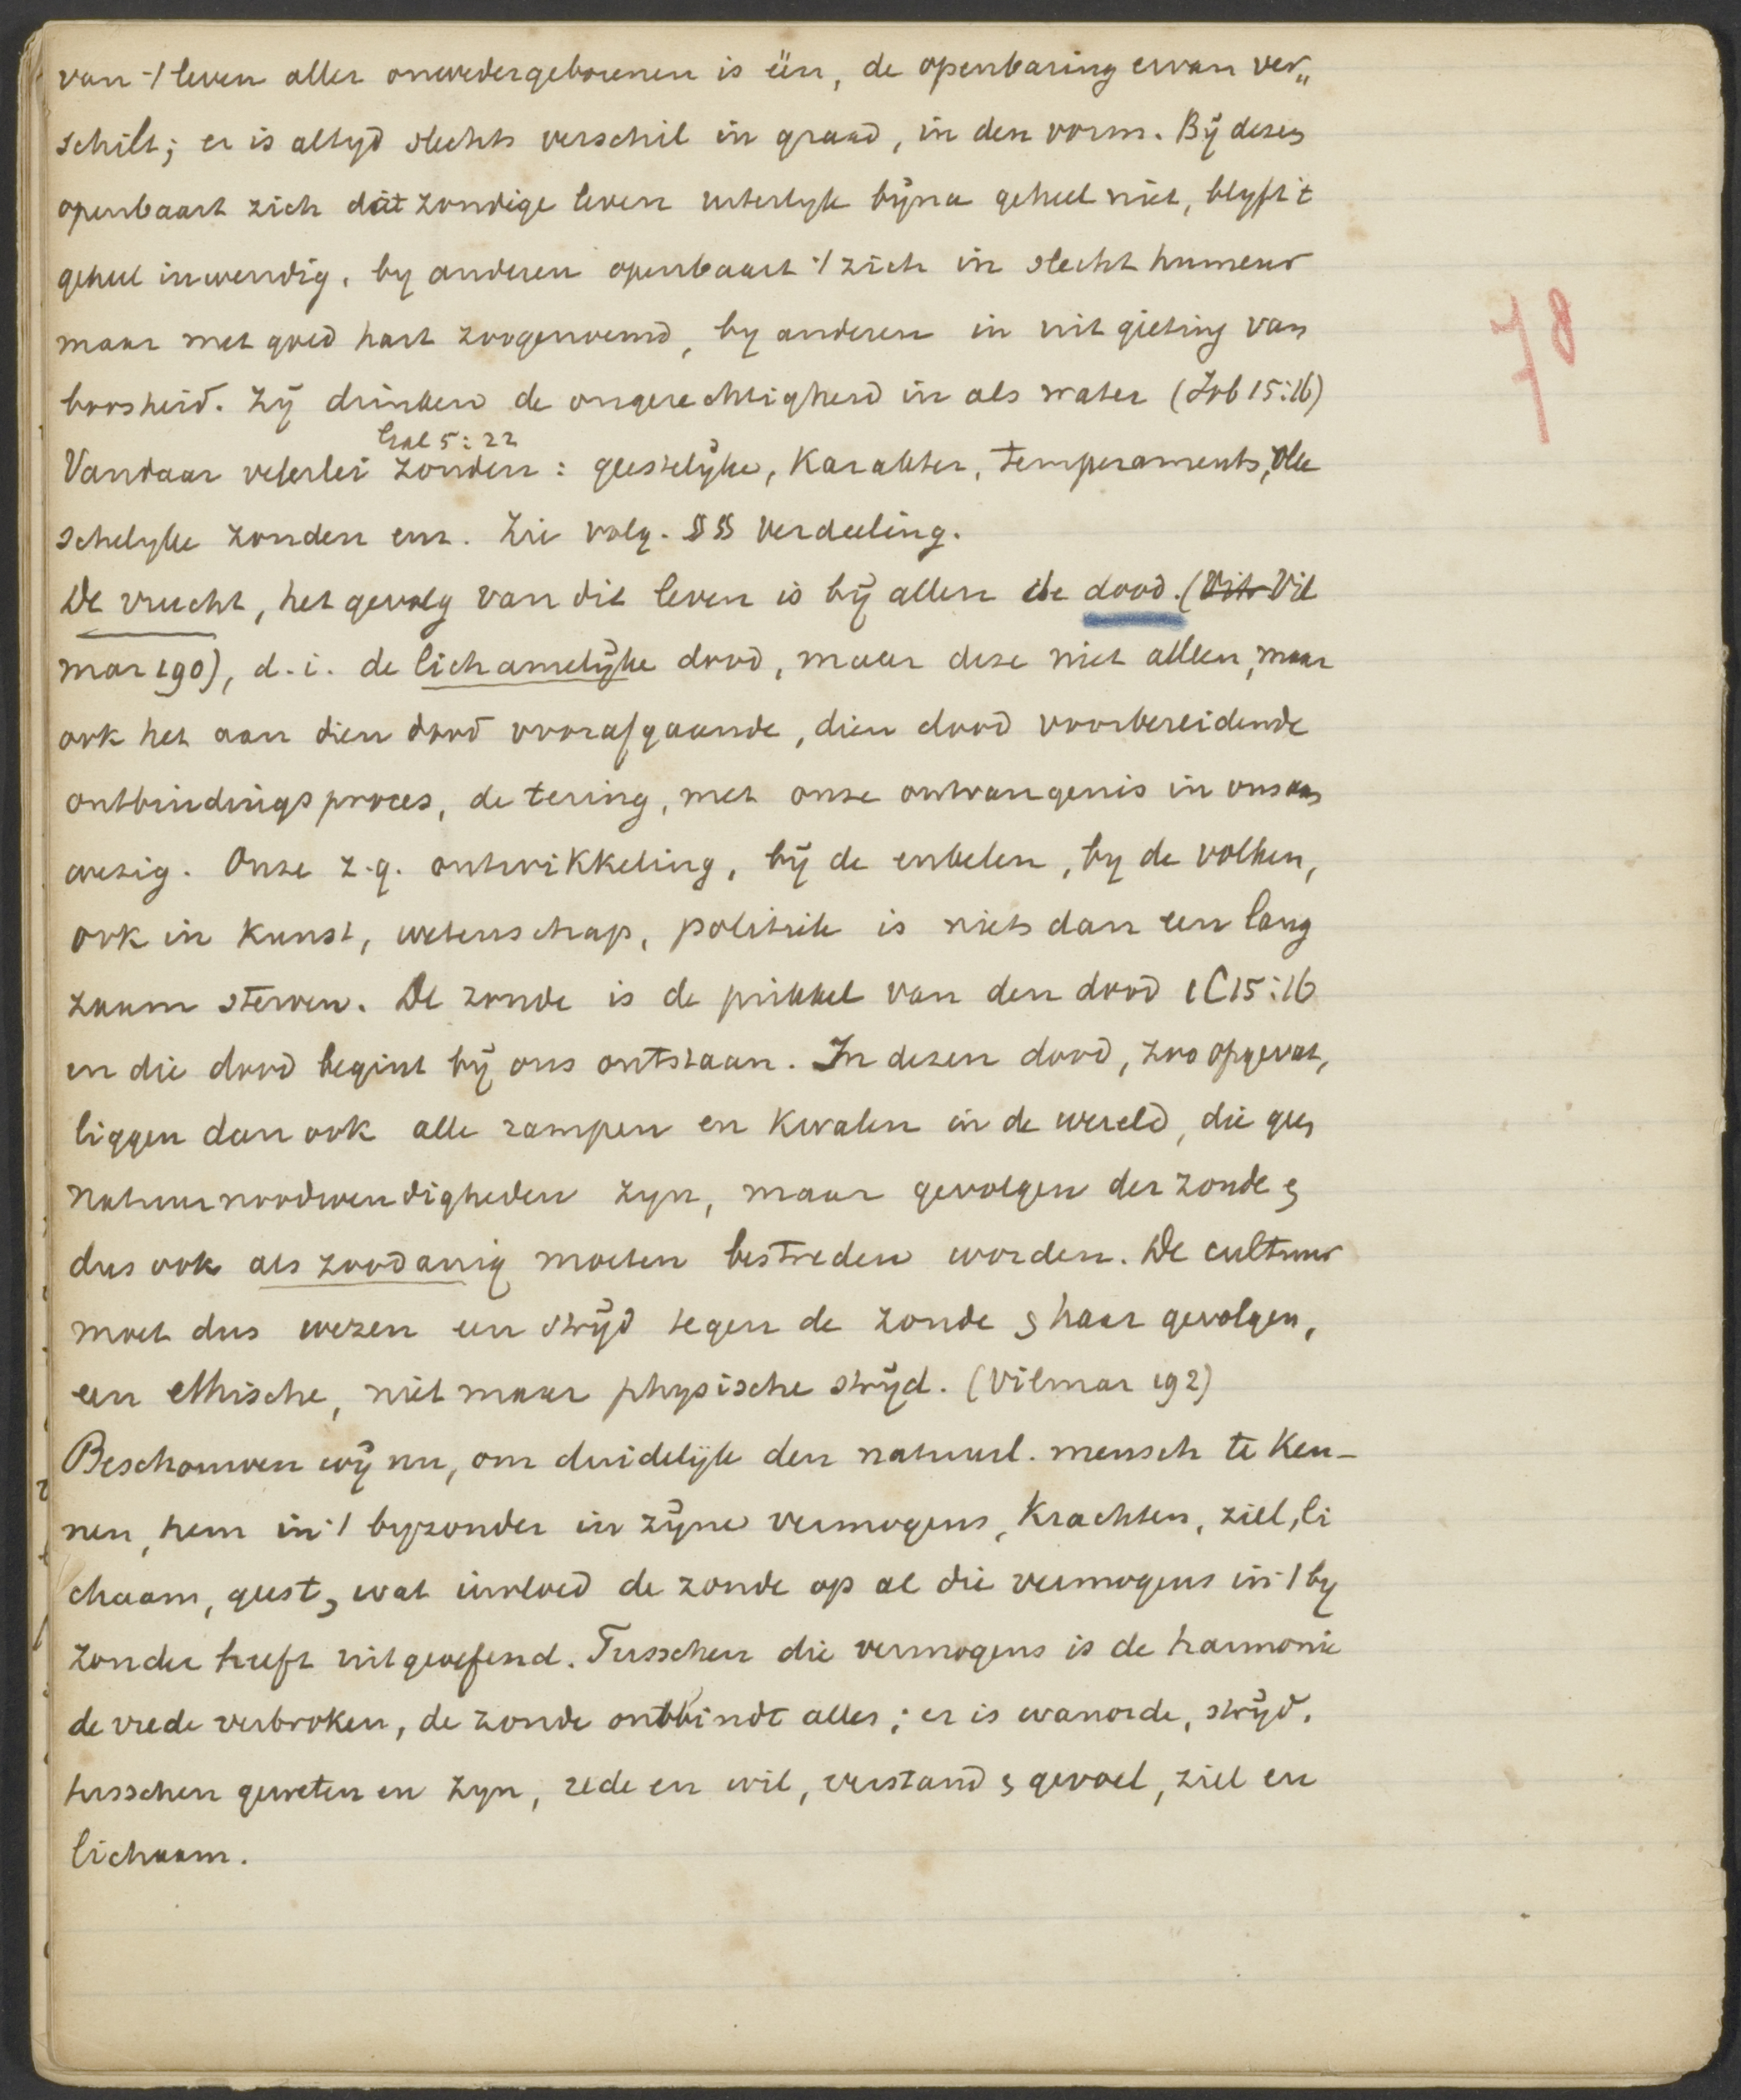 van 't leven aller onwedergeborenen is één, de openbaring ervan ver„
schilt; er is altyd slechts verschil in graad, in den vorm. Bij dezen
openbaart zich dát zondige leven uiterlyk bijna geheel niet, blyft 't
geheel inwendig, by anderen openbaart 't zich in slecht humeur
maar met goed hart zoogenoemd, by anderen in uitgieting van
boosheid. Zij drinken de ongerechtigheid in als water (Job 15:16)
Gal 5:22
Vandaar velerlei zonden: geestelijke, Karakter, Temperaments, vlee
schelyke zonden enz. Zie volg. §§ verdeeling.
De vrucht, het gevolg van dit leven is bij allen de dood. (Vit Vil
mar 190), d.i. de lichamelijke dood, maar deze niet alleen, maar
ook het aan dien dood voorafgaande, dien dood voorbereidende
ontbindingsproces, de tering, met onze ontvangenis in ons aan
wezig. Onze z.g. ontwikkeling, bij de enkelen, by de volken,
ook in Kunst, wetenschap, politiek is niets dan een lang
zaam sterven. De zonde is de prikkel van den dood 1C15:16
en die dood begint bij ons ontstaan. In dezen dood, zoo opgevat,
liggen dan ook alle rampen en Kwalen in de wereld, die geen
natuurnoodwendigheden zyn, maar gevolgen der zonde &
dus ook als zoodanig moeten bestreden worden. De cultuur
moet dus wezen een strijd tegen de zonde & haar gevolgen,
een ethische, niet maar physische strijd. (Vilmar 192)
Beschouwen wij nu, om duidelijk den natuurl. mensch te Ken-
nen, hem in 't byzonder in zijne vermogens, Krachten, ziel, li
chaam, geest, & wat invloed de zonde op al die vermogens in 't by
zonder heeft uitgeoefend. Tusschen die vermogens is de harmonie
de vrede verbroken, de zonde ontbindt alles; er is wanorde, strijd,
tusschen geweten en zyn, rede en wil, verstand & gevoel, ziel en
lichaam.
78